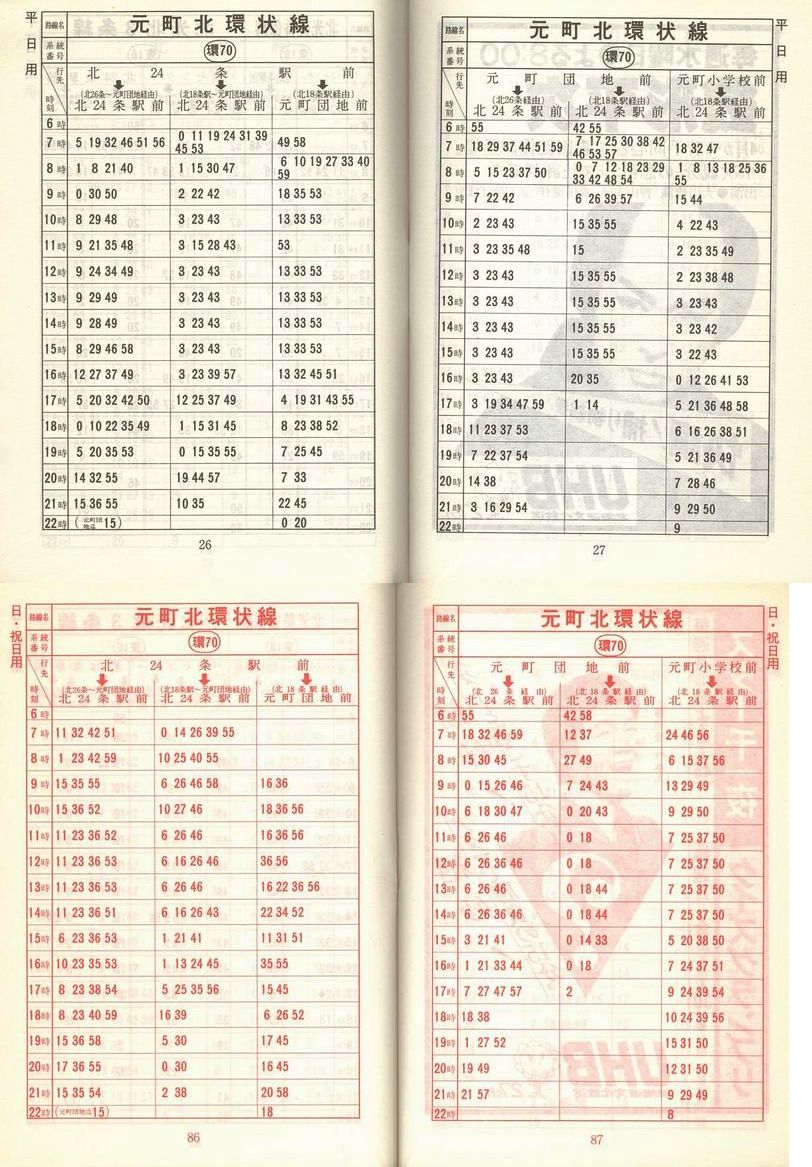 平日用
路線名 元町北環状線
系統番号 環70
行先 北24条駅前
時刻 (北26条〜元町団地経由) 北24条駅前 (北18条駅〜元町団地経由) 北24条駅前 (北18条駅経由) 元町団地前
6時
7時 5 19 32 46 51 56 0 11 19 24 31 39 45 53 49 58
8時 1 8 21 40 1 15 30 47 6 10 19 27 33 40 59
9時 0 30 50 2 22 42 18 35 53
10時 8 29 48 3 23 43 13 33 53
11時 9 21 35 48 3 15 28 43 53
12時 9 24 34 49 3 23 43 13 33 53
13時 9 29 49 3 23 43 13 33 53
14時 9 28 49 3 23 43 13 33 53
15時 8 29 46 58 3 23 43 13 33 53
16時 12 27 37 49 3 23 39 57 13 32 45 51
17時 5 20 32 42 50 12 25 37 49 4 19 31 43 55
18時 0 10 22 35 49 1 15 31 45 8 23 38 52
19時 5 20 35 53 0 15 35 55 7 25 45
20時 14 32 55 19 44 57 7 33
21時 15 36 55 10 35 22 45
22時 (元町団地迄15) 0 20
26
平日用
路線名 元町北環状線
系統番号 環70
行先 元町団地前 元町小学校前
時刻 (北26条経由) 北24条駅前 (北18条駅経由) 北24条駅前 (北18条駅経由) 北24条駅前
6時 55 42 55
7時 18 29 37 44 51 59 7 17 25 30 38 42 46 53 57 18 32 47
8時 5 15 23 37 50 0 7 12 18 23 29 33 42 48 54 1 8 13 18 25 36 55
9時 7 22 42 6 26 39 57 15 44
10時 2 23 43 15 35 55 4 22 43
11時 3 23 35 48 15 2 23 35 49
12時 3 23 43 15 35 55 2 23 38 48
13時 3 23 43 15 35 55 3 23 43
14時 3 23 43 15 35 55 3 23 42
15時 3 23 43 15 35 55 3 22 43
16時 3 23 43 20 35 0 12 26 41 53
17時 3 19 34 47 59 1 14 5 21 36 48 58
18時 11 23 37 53 6 16 26 38 51
19時 7 22 37 54 5 21 36 49
20時 14 38 7 28 46
21時 3 16 29 54 9 29 50
22時 9
27
日・祝日用
路線名 元町北環状線
系統番号 環70
行先 北24条駅前
時刻 (北26条〜元町団地経由) 北24条駅前 (北18条駅〜元町団地経由) 北24条駅前 (北18条駅経由) 元町団地前
6時
7時 11 32 42 51 0 14 26 39 55
8時 1 23 42 59 10 25 40 55
9時 15 35 55 6 26 46 58 16 36
10時 15 36 52 10 27 46 18 36 56
11時 11 23 36 52 6 26 46 16 36 56
12時 11 23 36 53 6 16 26 46 36 56
13時 11 23 36 53 6 26 46 16 22 36 56
14時 11 23 36 51 6 16 26 43 22 34 52
15時 6 23 36 53 1 21 41 11 31 51
16時 10 23 35 53 1 13 24 45 35 55
17時 8 23 38 54 5 25 35 56 15 45
18時 8 23 40 59 16 39 6 26 52
19時 15 36 58 5 30 17 45
20時 17 36 55 0 30 16 45
21時 15 35 54 2 38 20 58
22時 (元町団地迄15) 18
86
日・祝日用
路線名 元町北環状線
系統番号 環70
行先 元町団地前 元町小学校前
時刻 (北26条経由) 北24条駅前 (北18条駅経由) 北24条駅前 (北18条駅経由) 北24条駅前
6時 55 42 58
7時 18 32 46 59 12 37 24 46 56
8時 15 30 45 27 49 6 15 37 56
9時 0 15 26 46 7 24 43 13 29 49
10時 6 18 30 47 0 20 43 9 29 50
11時 6 26 46 0 18 7 25 37 50
12時 6 26 36 46 0 18 7 25 37 50
13時 6 26 46 0 18 44 7 25 37 50
14時 6 26 36 46 0 18 44 7 25 37 50
15時 3 21 41 0 14 33 5 20 38 50
16時 1 21 33 44 0 18 7 24 37 51
17時 7 27 47 57 2 9 24 39 54
18時 18 38 10 24 39 56
19時 1 27 52 15 31 50
20時 19 49 12 31 50
21時 21 57 9 29 49
22時 8
87